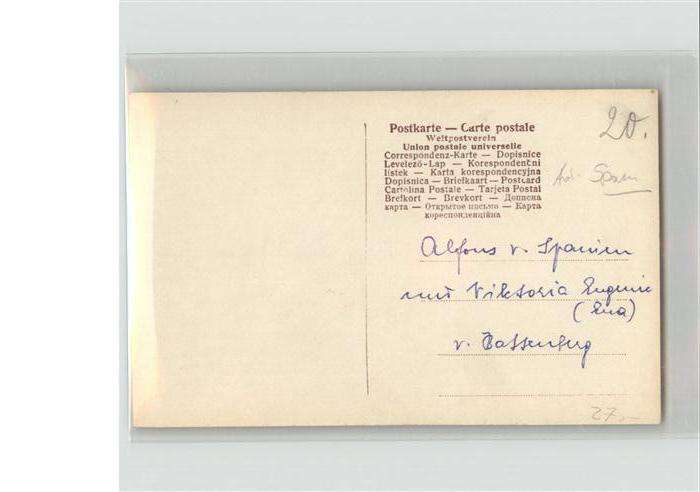 Postkarte — Carte postale
Weltpostverein
Union postale universelle
Correspondenz-Karte — Dopisnice
Levelező-Lap — Korespondentni
listek — Karta korespondencyjna
Dopisnica — Briefkaart — Postcard
Cartolina Postale — Tarjeta Postal
Brefkort — Brevkort — Дописна
карта — Открытое письмо — Карта
кореспонденцiйна
20.
Spain
Alfons v. Spanien
und Viktoria Eugenie
(Ena)
v. Battenberg
27.—